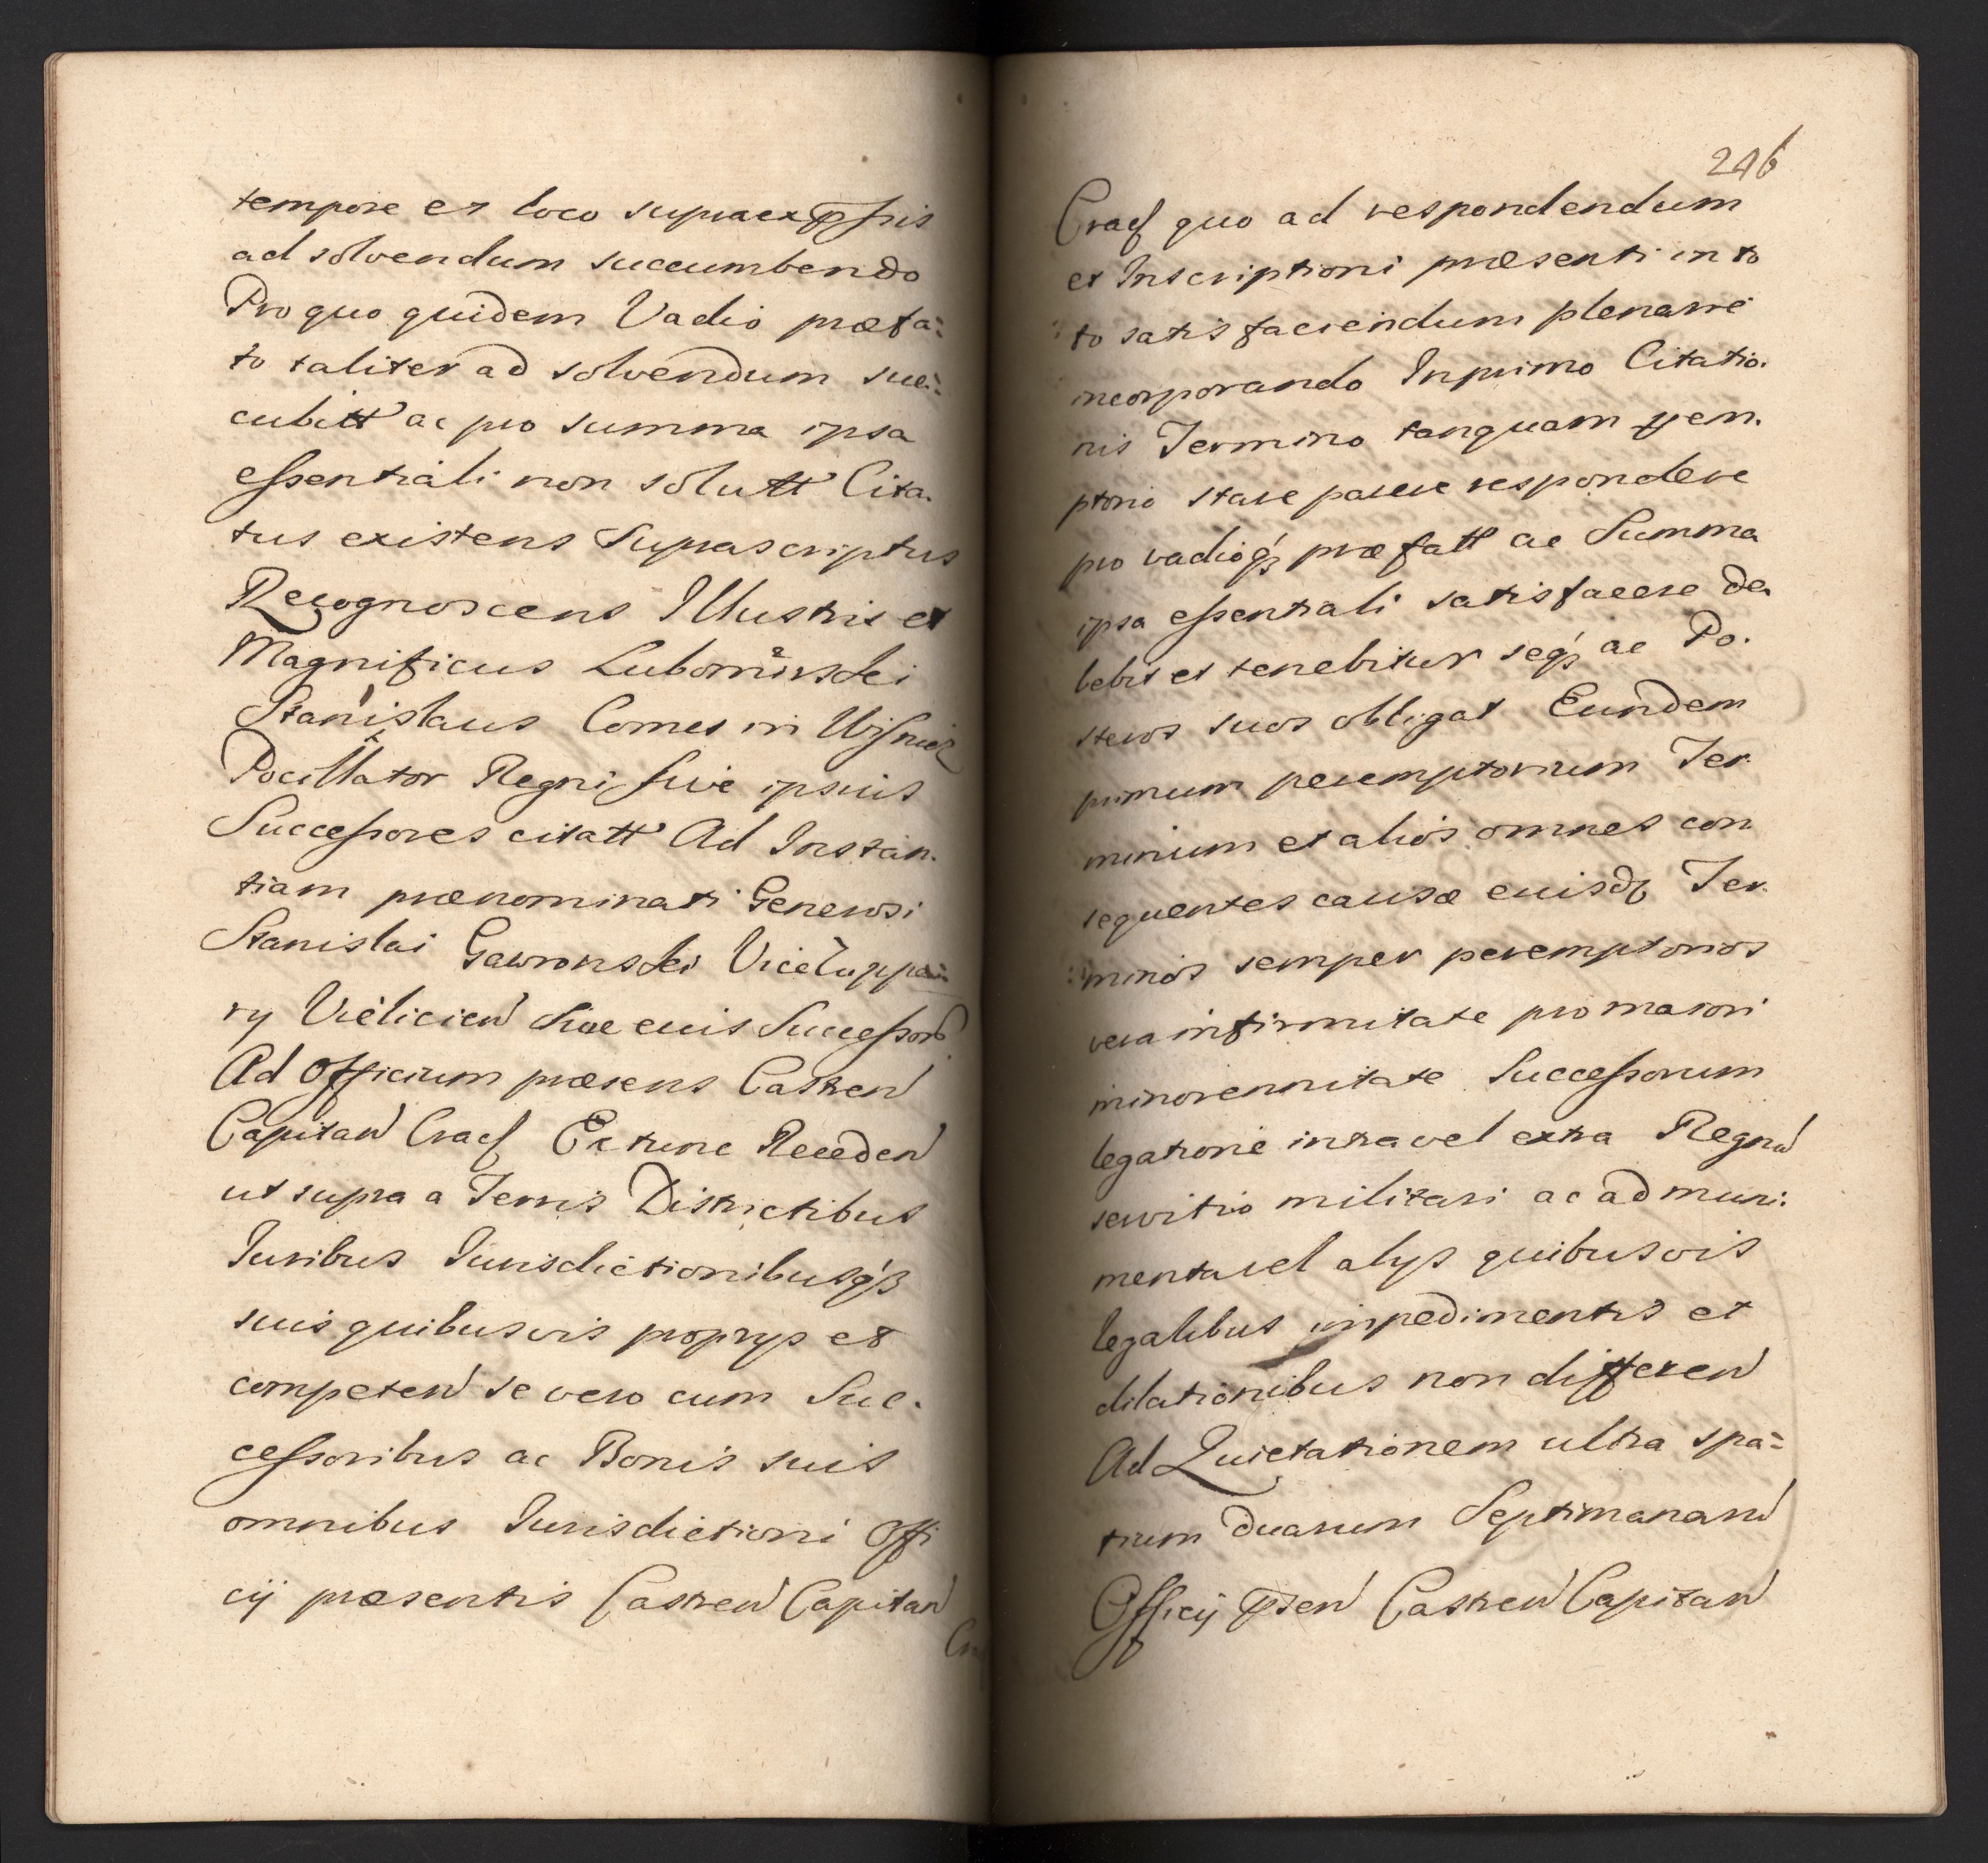 tempore et loco supraexpssis
ad solvendum succumbendo
Pro quo quidem Vadio præfa=
to taliter ad solvendum suc=
cubitt ac pro summa ipsa
essentiali non solutt Cita.
tus existens Suprascriptus
Recognoscens Illustris et
Magnificus Lubomirski
Stanislaus Comes in Wisnicz
Pocillator Regni sive ipsius
Successores citatt Ad Instan.
tiam prænominati Generosi
Stanislai Gawronski Vicezuppa=
ry Vielicien sive euis Successor
Ad Officium præsens Castren
Capitan Crac Ex tunc Receden
ut supra a Terris Districtibus
Iuribus Iurisdictionibusqz
suis quibusvis proprys et
competen se vero cum Suc.
cessoribus ac Bonis suis
omnibus Iurisdictioni Offi
cij præsentis Castren Capitan
Cra
246
Crac quo ad respondendum
et Inscriptioni præsenti in to
to satisfaciendum plenarie
incorporando In primo Citatio.
nis Termino tanquam peren.
ptorio stare parere respondere
pro vadioqz præfatt ac Summa
ipsa essentiali satisfacere de
bebit et tenebitur seqz ac Po.
steros suos obligat Eundem
primum peremptorium Ter
minum et alios omnes con
sequentes causæ euisd Ter
minos semper peremptorios
vera infirmitate pro maiori
minorennitate Successorum
legatione intra vel extra Regnu
servitio militari ac ad muni.
menta vel alys quibusvis
legalibus impedimentis et
dilationibus non differen
Ad Quietationem ultra spa=
tium duarum Septimanaru
Officij psen Castren Capitan